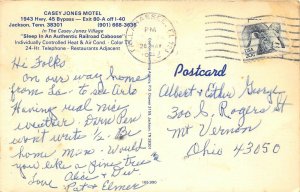 CASEY JONES MOTEL
1943 Hwy. 45 Bypass — Exit 80-A off I-40
Jackson, Tenn. 38301 (901) 668-3636
In The Casey Jones Village
"Sleep In An Authentic Railroad Caboose"
Individually Controlled Heat & Air Cond. - Color
24-Hr. Telephone - Restaurants Adjacent
PM
Postcard
Hi Folks
On our way home
from La - to see Arlo
Having real nice
weather. Darn Pen
won't write ½. Be
home Mon. Would
you like a pine tree
Love
Pat & Elmer
Albert & Ethel George
300 S. Rogers St
Mt Vernon
Ohio 43050